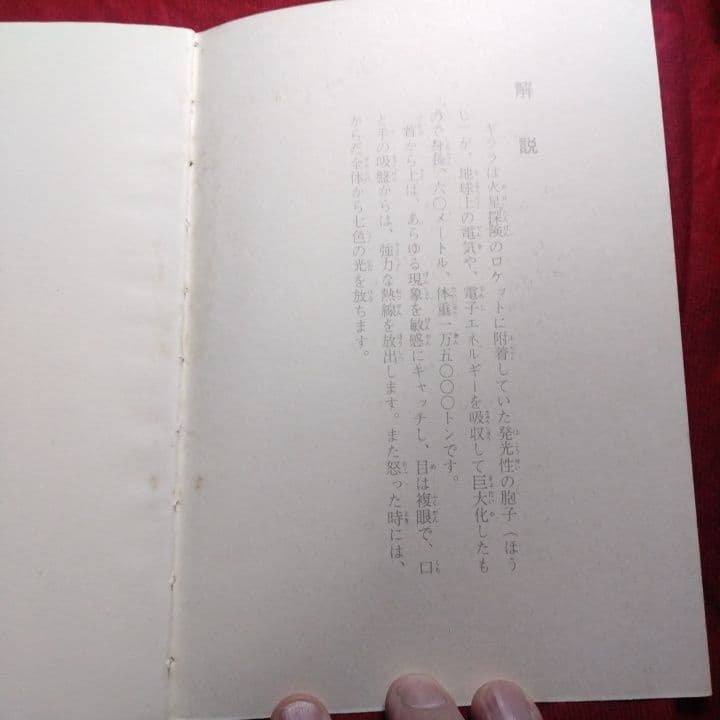 解説
ギララは火星探険のロケットに附着していた発光性の胞子(ほう
し)が、地球上の電気や、電子エネルギーを吸収して巨大化したも
ので身長、六〇メートル、体重一万五〇〇〇トンです。
首から上は、あらゆる現象を敏感にキャッチし、目は複眼で、口
と手の吸盤からは、強力な熱線を放出します。また怒った時には、
からだ全体から七色の光を放ちます。